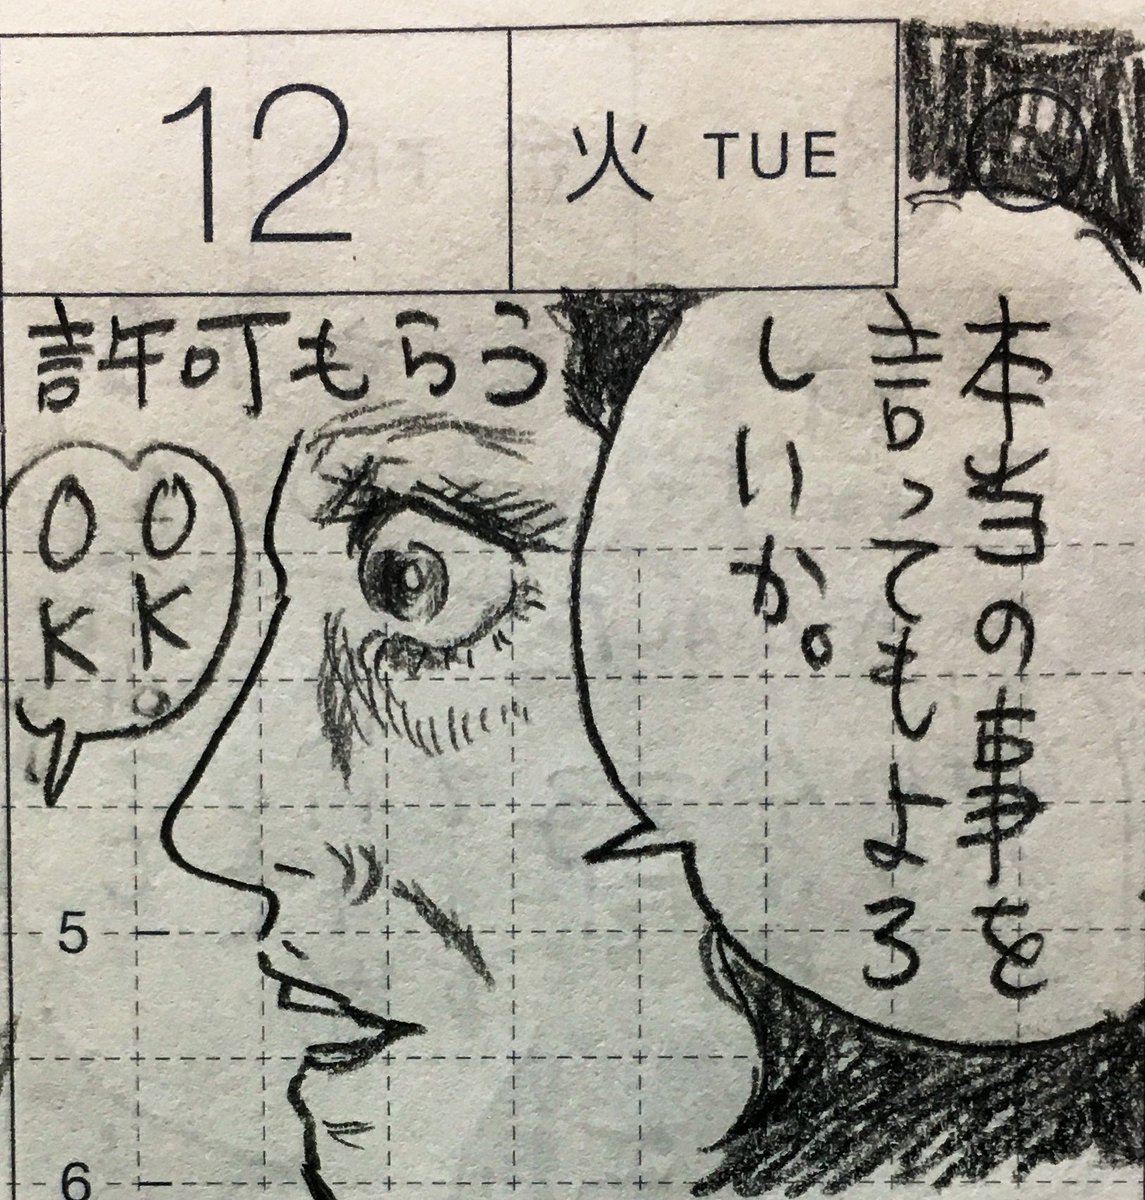 12
火 TUE
許可もらう
本当の事を
言ってもよろ
しいか。
OK
OK。
5
6